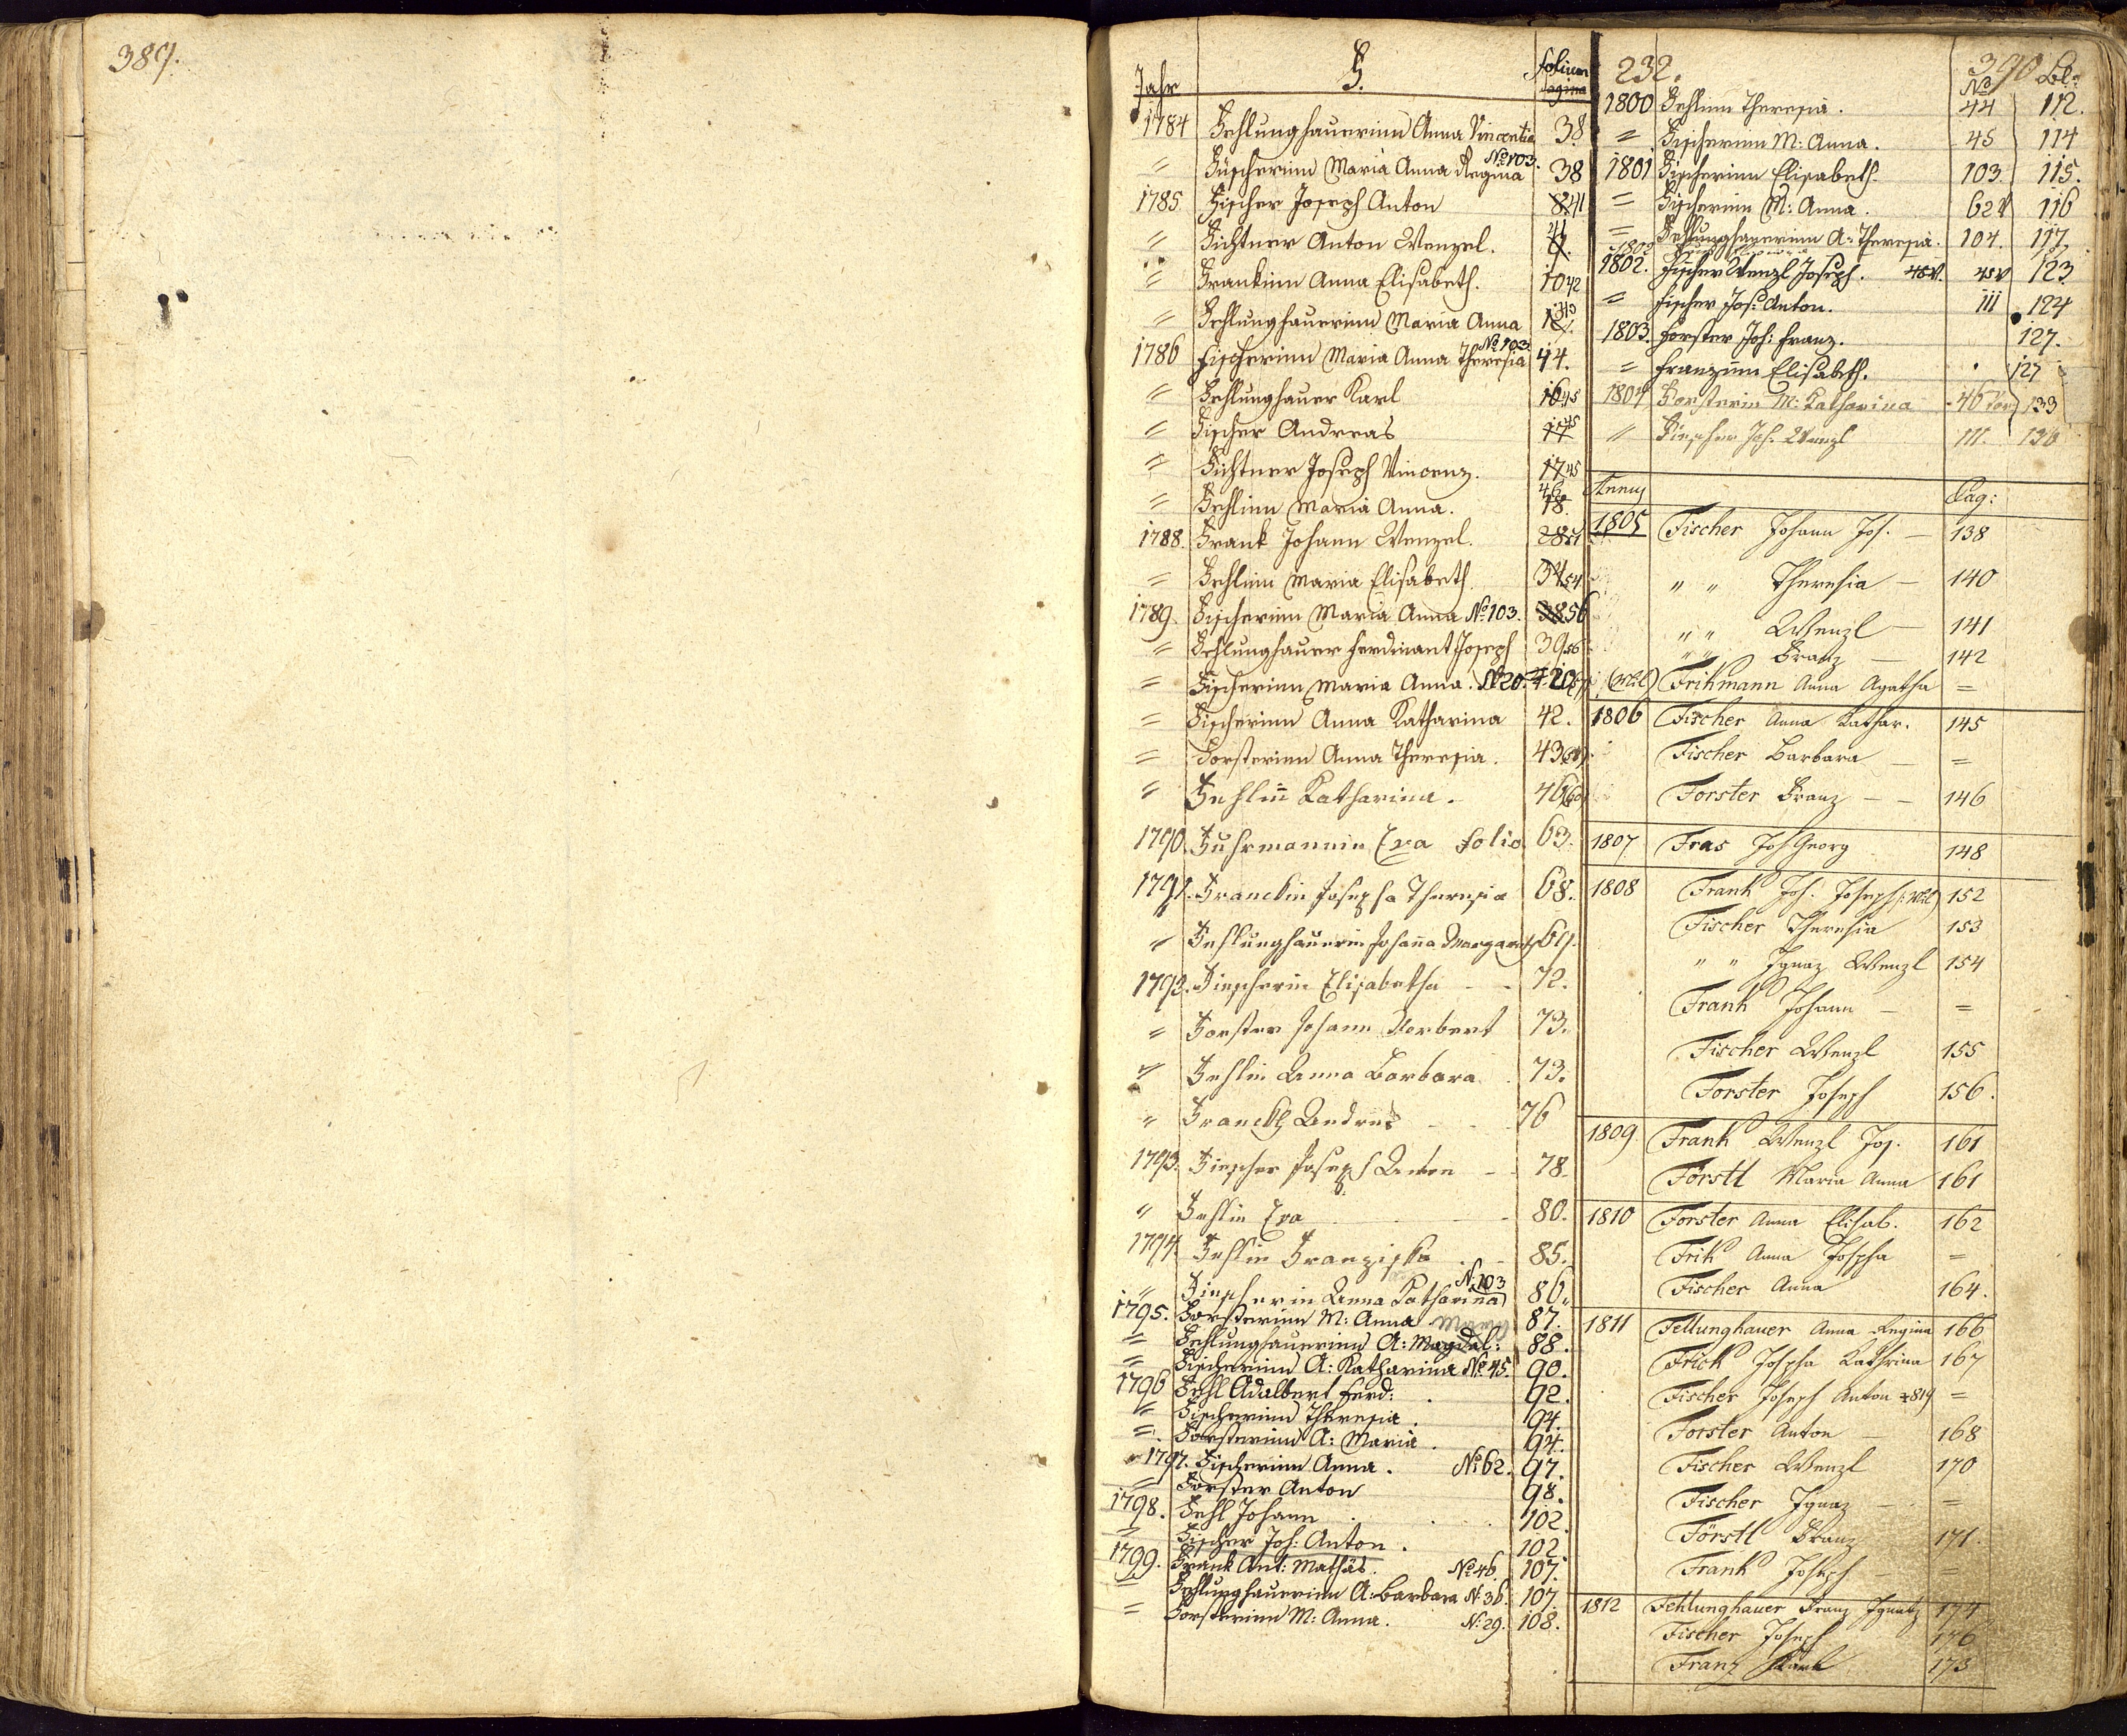 389.
Jahr F. folium pagina
1784 Fehlunghauerinn Anna Vincentia 38
" Füscherinn Maria Anna Regina No 103. 38
1785. Fischer Joseph Anton 41
" Fichtner Anton Wenzel. 41
" Frankinn Anna Elisabeth. 10 42
" Fehlunghauerinn Maria Anna
1786 Fischerinn Maria Anna Theresia No 103. 44.
" Fehlunghauer Karl 16 45
" Fischer Andreas 17 45
" Fichtner Joseph Vincenz. 17 45
" Fehlinn Maria Anna. 18. 46
1788. Frank Johann Wenzel. 28 51
" Fehlinn Maria Elisabeth. 34 54
1789. Fischerinn Maria Anna No 103. 38 56
" Fehlunghauer Ferdinant Joseph 39 56
= Fischerinn Maria Anna. No 20.
= Fischerinn Anna Katharina 42.
= Forsterinn Anna Theresia. 43
" Fehlin̄ Katharina. 46 60
1790. Fuhrmannin Eva folio 63.
1791. Franckin Josepha Theresia 68.
" Fehlunghauerin Johan̄a Margareth 69.
1792. Fiescherin Elisabetha - - 72.
" Forster Johann Norbert 73.
" Fehlin Anna Barbara. 73.
" Franckh Andreas - - 76
1793. Fiescher Joseph Anton - - 78.
" Fehlin Eva - - 80.
1794. Fehlin Franziska . - 85.
" Fiescherin Anna Katharina N. 103 86.
1795. Forsterinn M: Anna 87.
= Fehlunghauerinn A: Magdal: 88.
= Fischerinn A: Katharina No 45. 90.
1796 Fehl Adalbert Ferd: . 92.
= Fischerinn Theresia. 94.
= Forsterinn A: Maria. 94.
1797. Fischerinn Anna. No 62. 97.
= Forster Anton 98.
1798. Fehl Johann . . . 102.
= Fischer Joh: Anton. 102
1799. Frank Ant: Mathäs. No 46. 107.
= Fehlunghauerinn A: Barbara N: 36. 107.
= Forsterinn M: Anna. N: 29. 108.
232. 390
No Bl:
1800 Fehlinn Theresia. 44 112.
= Fischerinn M: Anna. 45 114
1801 Fischerinn Elisabeth. 103. 115.
= Fischerinn M: Anna. 62 116
= Fehlunghauerinn A: Theresia. 104. 117.
1802. Fischer Wenzl Joseph. 123
= Fischer Jos: Anton. 111 124
1803. Forster Joh: Franz. 127.
= Franzinn Elisabeth. 127
1804 Forsterin M: Katharina 46 133
" Fiescher Joh. Wenzl 111. 136
Annus Pag:
1805 Fischer Johann Jos. — 138
" " Theresia — 140
" " Wenzl — 141
" " Franz — 142
Frikmann Anna Agatha =
1806 Fischer Anna Kathar. 145
Fischer Barbara — =
Forster Franz — - 146
1807 Fras Joh Georg 148
1808 Frank Joh. Joseph 152
Fischer Theresia 153
" " Ignaz Wenzl 154
Frank Johann — =
Fischer Wenzl 155
Forster Joseph 156.
1809. Frank Wenzl Jos. 161
Förstl Maria Anna 161
1810 Forster Anna Elisab. 162
Frik Anna Josepha =
Fischer Anna 164.
1811 Fellunghauer Anna Regina 166
Frick Josepha Kathrina 167
Fischer Joseph Anton +819 =
Forster Anton — 168
Fischer Wenzl 170
Fischer Ignaz — =
Förstl Franz 171.
Frank Joseph =
1812 Fehlunghauer Franz Ignatz 174
Fischer Joseph 176
Franz 173